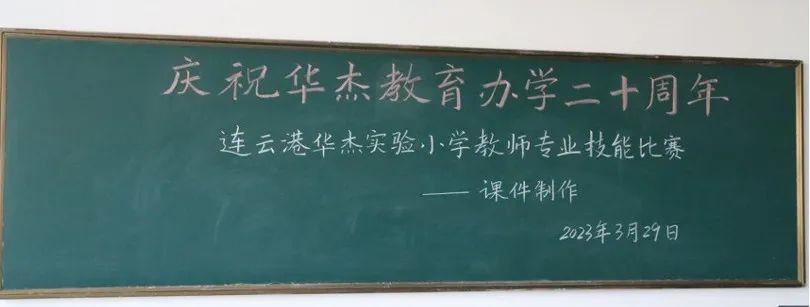 庆祝华杰教育办学二十周年
连云港华杰实验小学教师专业技能比赛
——课件制作
2023年3月29日